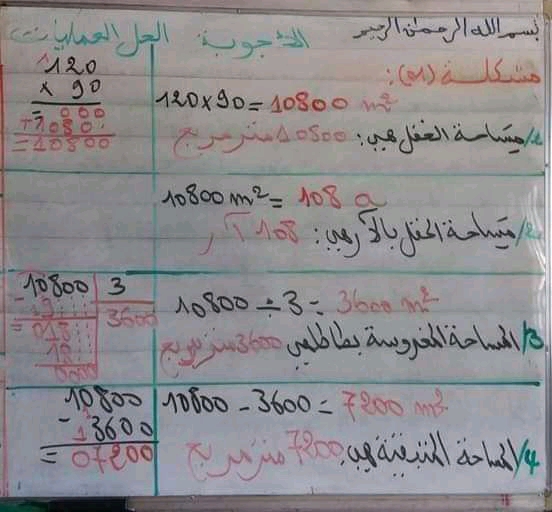 بسم الله الرحمان الرحيم
الأجوبة
الحل العمليات
مشكلة (01):
120x90 = 10800 m²
1/ مساحة الحقل هي: 10800 متر مربع
120
x 90
= 000
+ 1080.
= 10800
10800 m² = 108 a
2/ مساحة الحقل بالآر هي: 108 آر
10800 ÷ 3 = 3600 m²
3/ المساحة المغروسة بطاطا هي 3600 متر مربع
10800 3
3600
= 018
18
0000
10800 - 3600 = 7200 m²
4/ المساحة المتبقية هي: 7200 متر مربع
10800
- 3600
= 07200